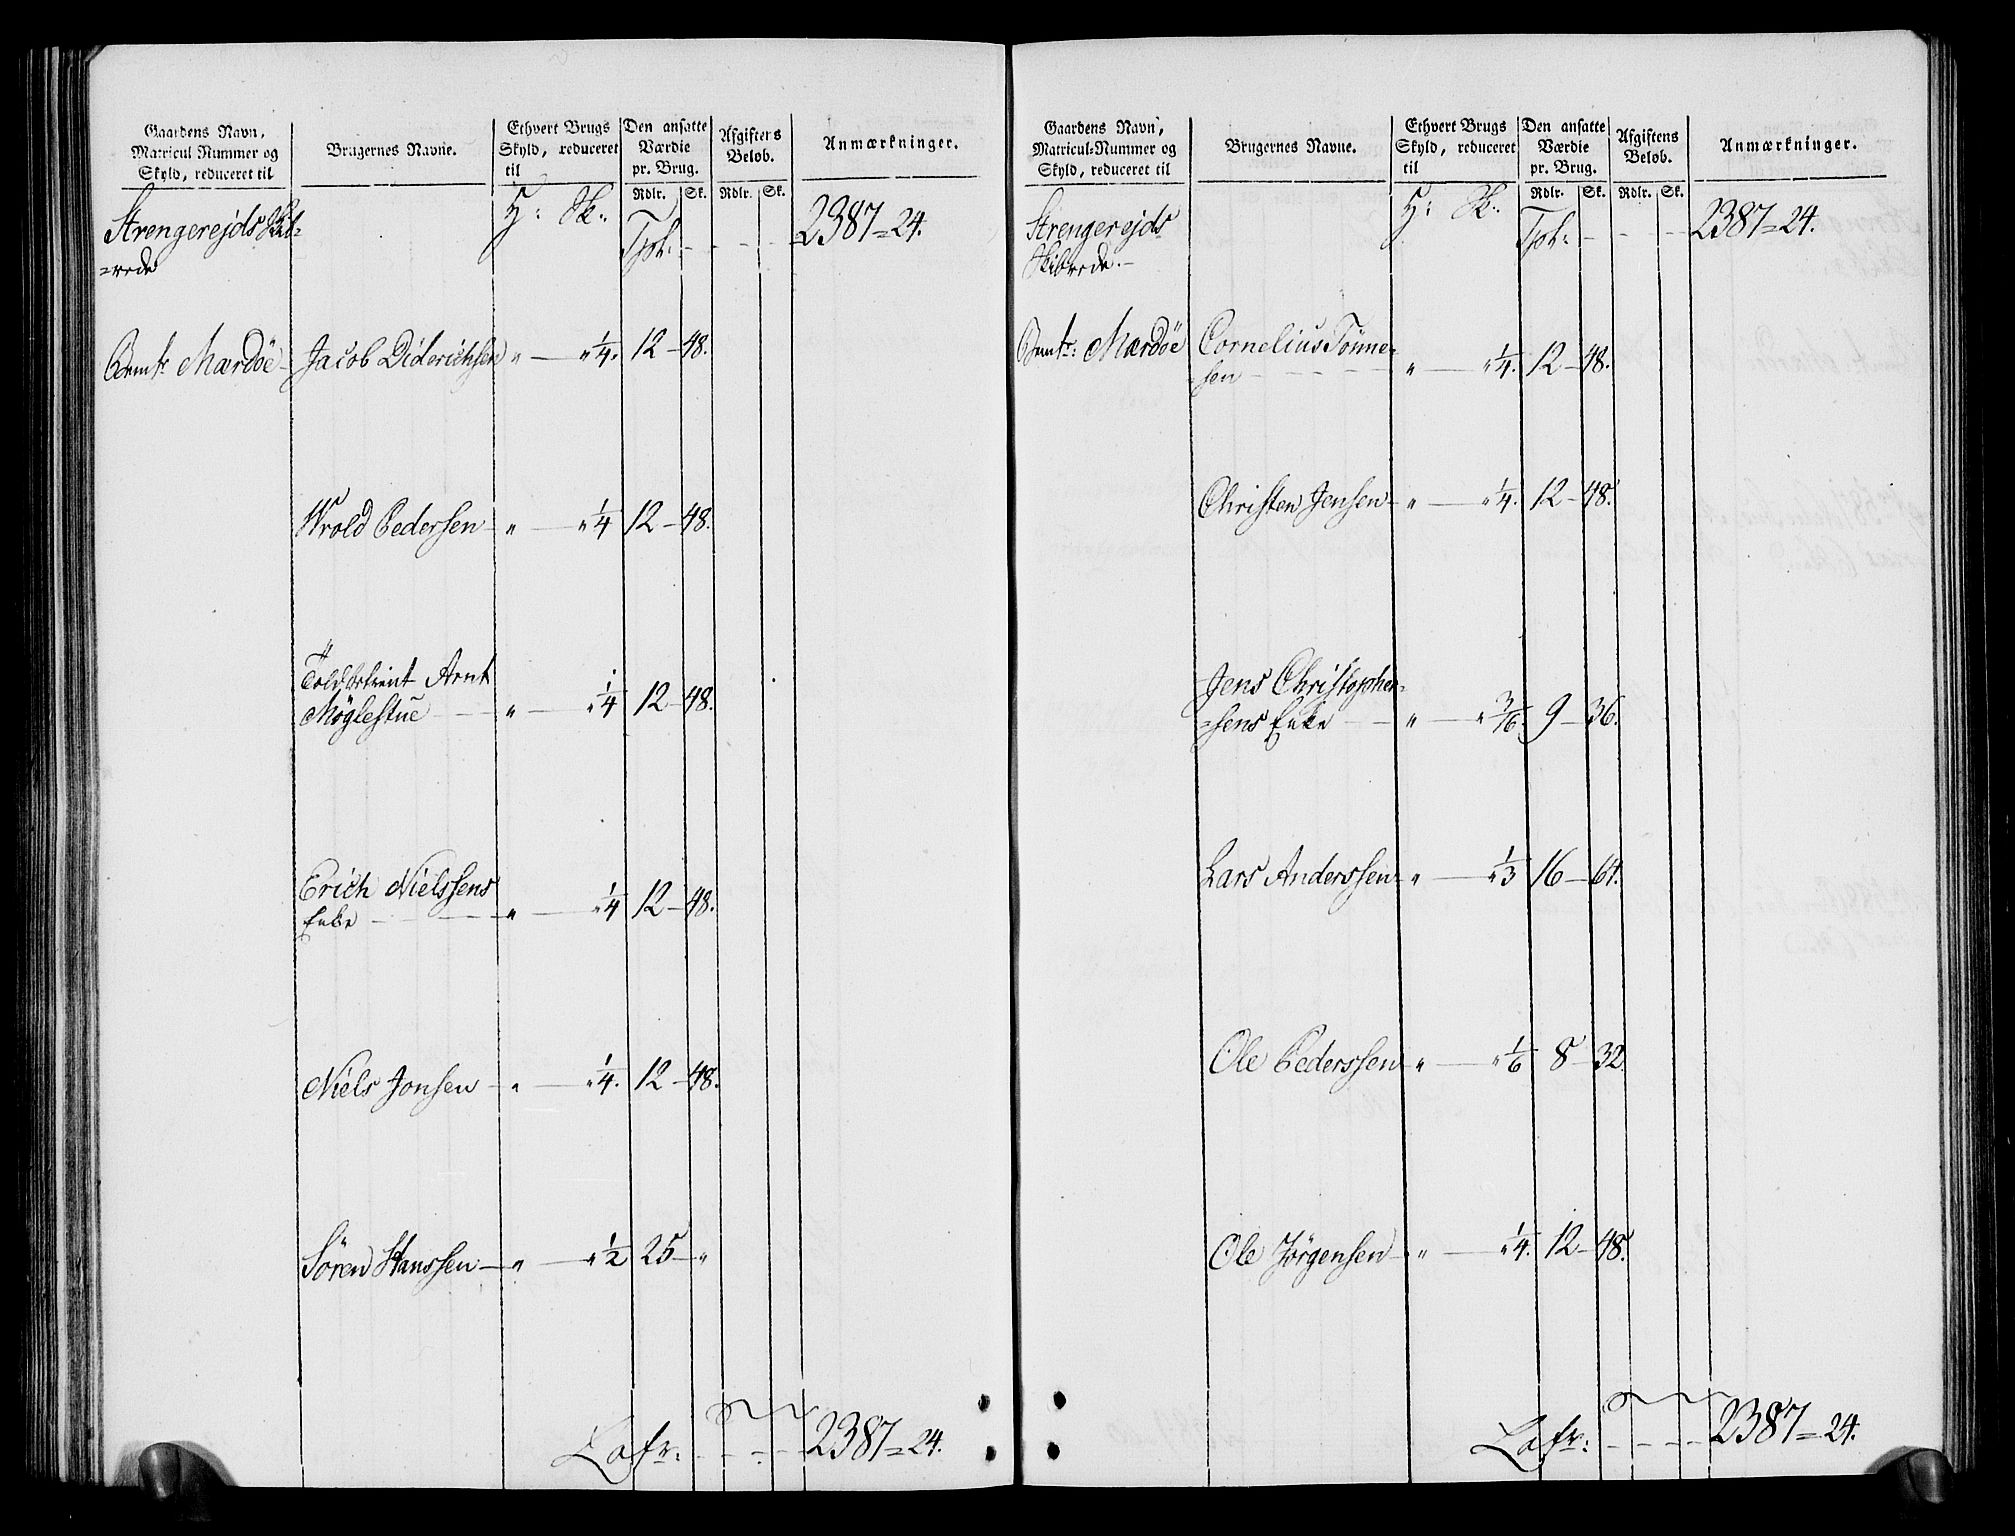 Gaardens Navn, Matricul Nummer og Skyld, reduceret til
Brugernes Navne.
Ethvert Brugs Skyld, reduceret til
Den ansatte Værdie pr. Brug.
Afgiftens Beløb.
Anmærkninger.
Rdlr. Sk. Rdlr. Sk.
Strengerejds Skib-
=rede
H: Sk:
Tph: - - - - 2387=24.
Mærdöe - Jacob Diderichsen " — " 1/4. 12 - 48.
Wrold Pedersen - " — " 1/4 12 - 48.
Arnt
Møglestue — " — " 1/4 12 - 48.
Erich Nielssens
Enke — " — " 1/4 12 - 48.
Niels Jonsen - " — " 1/4. 12 - 48.
Sören Hanssen - " — " 1/2 25 - "
Lafr: - - - - 2387=24.
Gaardens Navn, Matricul-Nummer og Skyld, reduceret til
Brugernes Navne.
Ethvert Brugs Skyld, reduceret til
Den ansatte Værdie pr. Brug.
Afgiftens Beløb.
Anmærkninger.
Rdlr. Sk. Rdlr. Sk.
Strengerejds
Skibrede. -
H: Sk:
Tph: - - - - 2387=24.
Mærdöe Cornelius Tönne-
=sen - - - - " — " 1/4. 12 - 48.
Christen Jensen - " — " 1/4. 12 - 48.
Jens Christopher-
=sens Enke — " — " 3/16. 9 - 36.
Lars Anderssen - " — " 1/3 16 - 64.
Ole Pederssen - " — " 1/6 8 - 32.
Ole Jörgensen - " — " 1/4. 12 - 48.
Lafr: - - - - 2387=24.